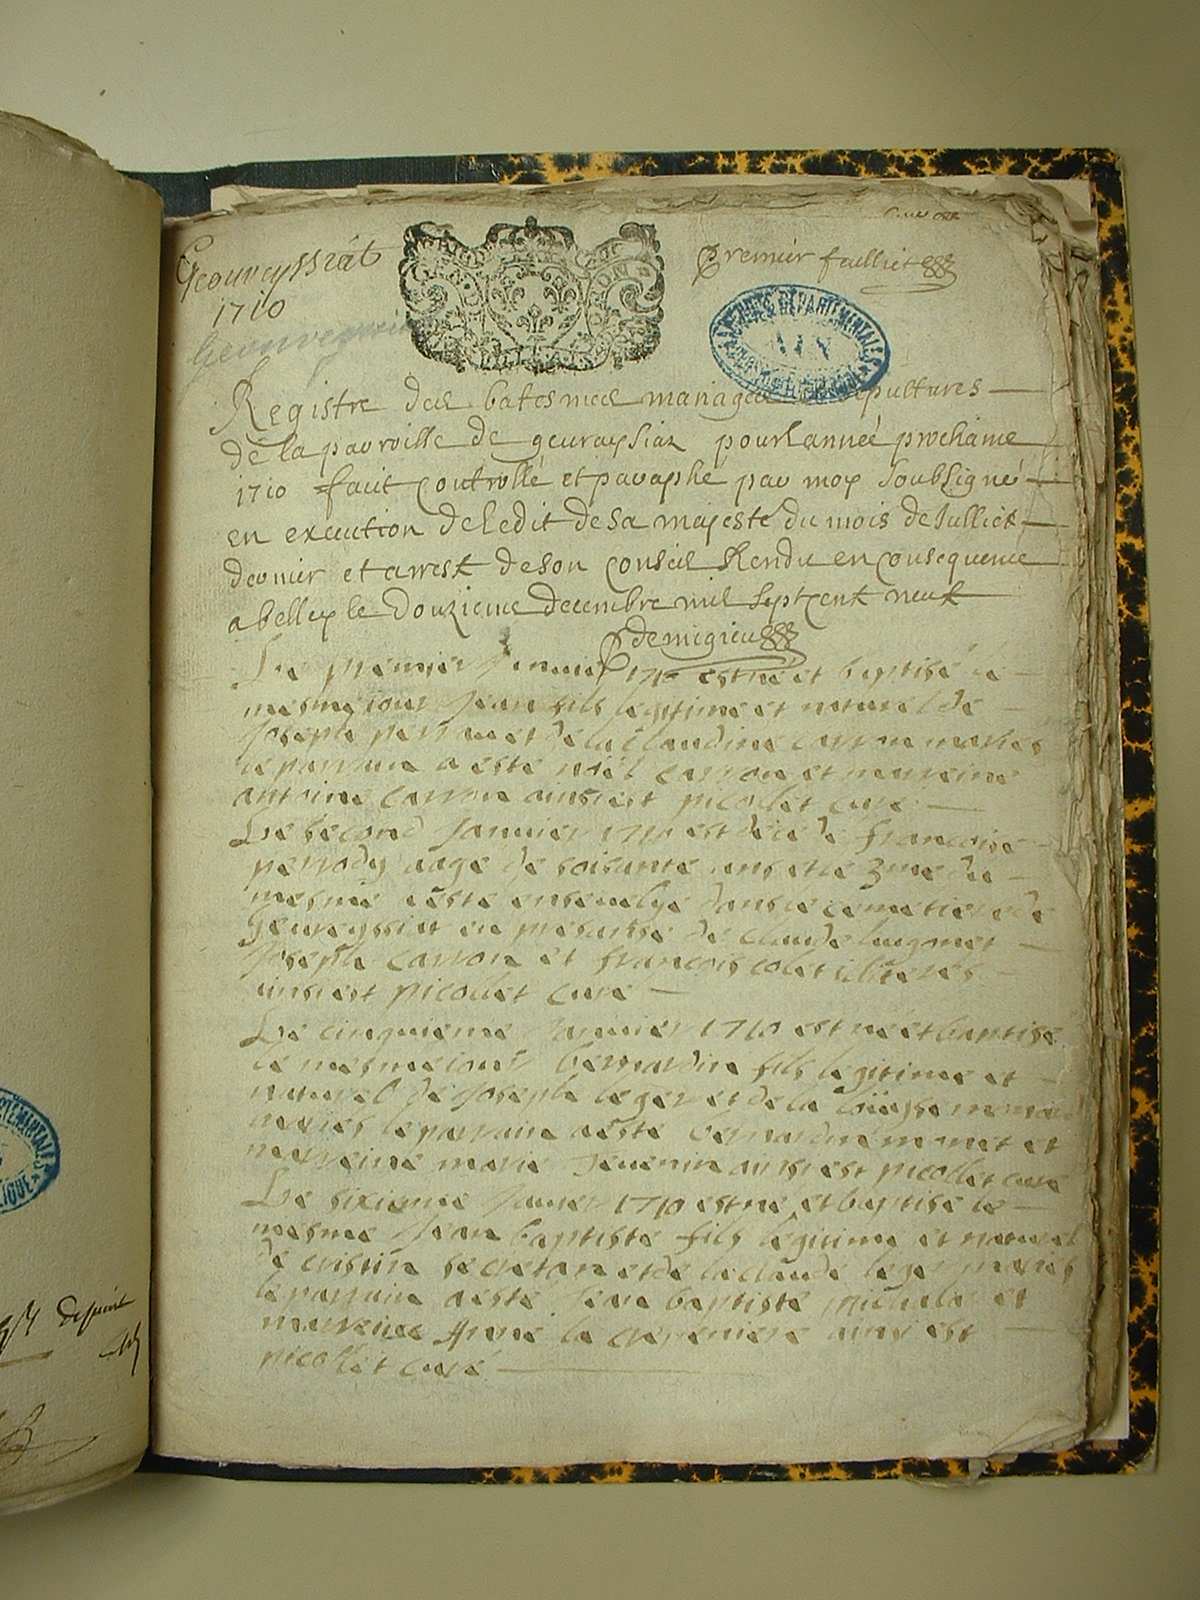 Geovreyssiat
1710
Premier feulliet
ARCHIVES DEPARTEMENTALES
AIN
Registre des batesmes mariages et sepultures
de la parroisse de geuraysiaz pour l'année prochaine
1710 fait controllé et paraphé par moy soubsigné
en execution de ledit de sa majesté du mois de Julliet
dernier et arrest de son conseil Rendu en consequence
a belley le douzieme decembre mil sept cent neuf
demigieu
Le premier Janvier 1710 est né et baptisé le
mesme jour Jean fils legitime et naturel de
Joseph et de la Claudine Carron maries
le parrain a esté noël carron et marreine
antoine carron ainsi est picollet curé
Le second Janvier 1710 est décédé françoise
perrody aagé de soisante ans et le 3me du
mesme a esté ensevelye dans le cemetiere de
Geureyssiat en presence de claude
Joseph carron et francois colet
ainsi est picollet curé
Le cinquieme Janvier 1710 est né et baptisé
le mesme jour bernardin fils legitime et
naturel de Joseph leger et de la loüyse
maries le parrain a esté bernardin monet et
marreine marie Jevenin ainsi est picollet curé
Le sixieme Janvier 1710 est né et baptisé le
mesme Jean baptiste fils legitime et naturel
de et de la claude leger maries
le parrain a esté Jean baptiste et
marreine la ainsi est
picollet curé